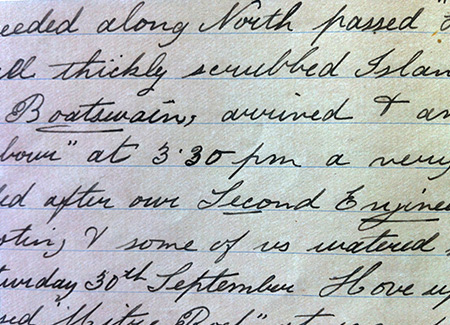 eeded along North passed "
ll thickly scrubbed Islan
Boatswain, arrived & an
bour" at 3.30 pm a very
ed after our Second Enginee
oting & some of us watered
turday 30th September Hove up
sed "Mitre Rock"